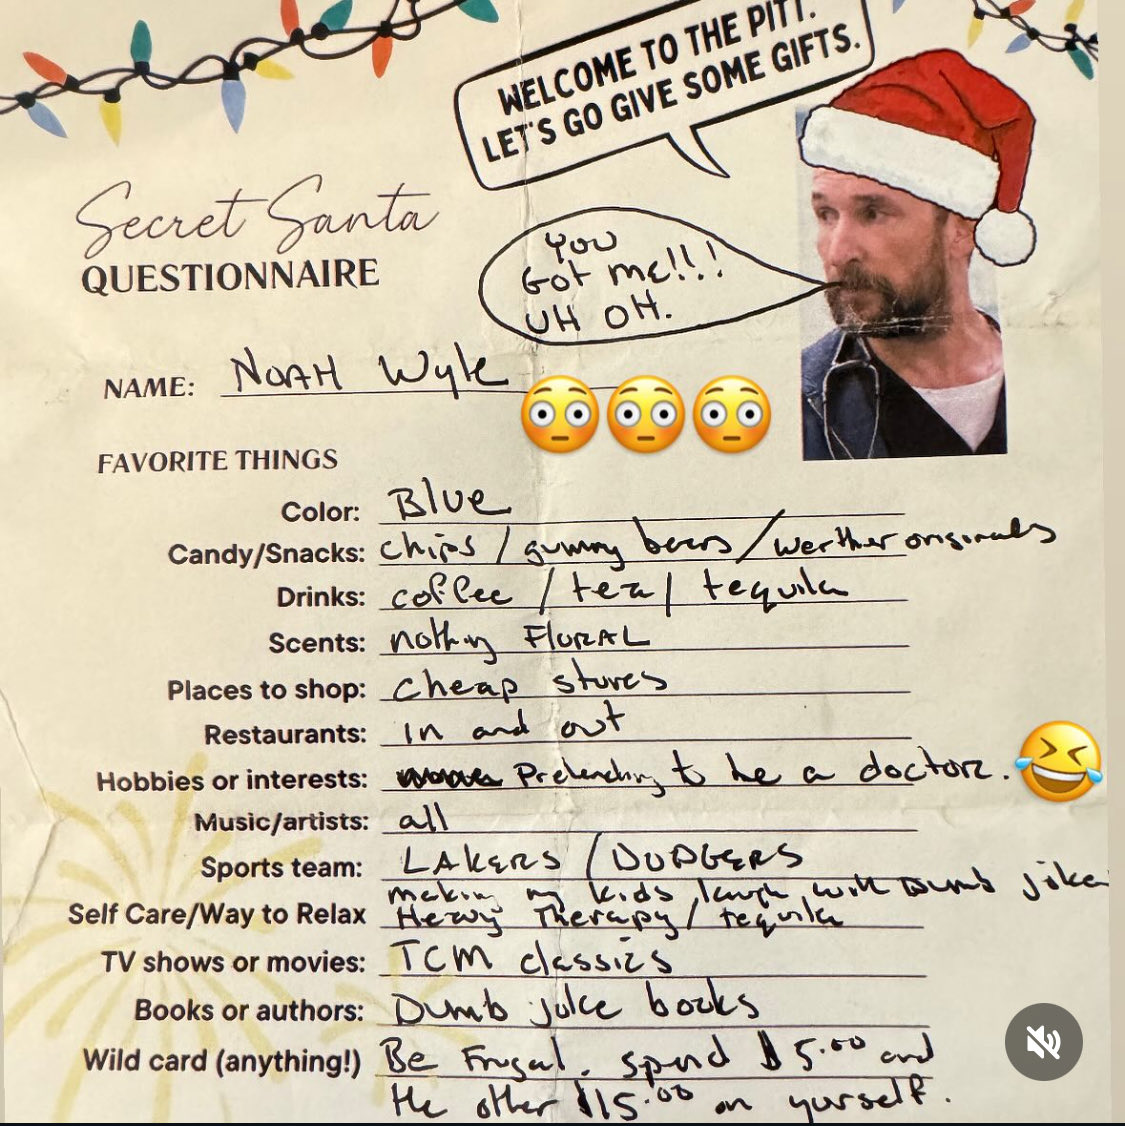 WELCOME TO THE PITT.
LET'S GO GIVE SOME GIFTS.
Secret Santa
QUESTIONNAIRE
YOU
GOT me!!!
UH OH.
NAME: NOAH Wyle
FAVORITE THINGS
Color: Blue
Candy/Snacks: chips / gummy bears / werther originals
Drinks: coffee / tea / tequila
Scents: nothing FLORAL
Places to shop: cheap stores
Restaurants: in and out
Hobbies or interests: Pretending to be a doctor.
Music/artists: all
Sports team: LAKERS / DODGERS
making my kids laugh with Dumb jokes
Self Care/Way to Relax Heavy Therapy / tequila
TV shows or movies: TCM classics
Books or authors: Dumb joke books
Wild card (anything!) Be Frugal. spend $5.00 and
the other $15.00 on yourself.